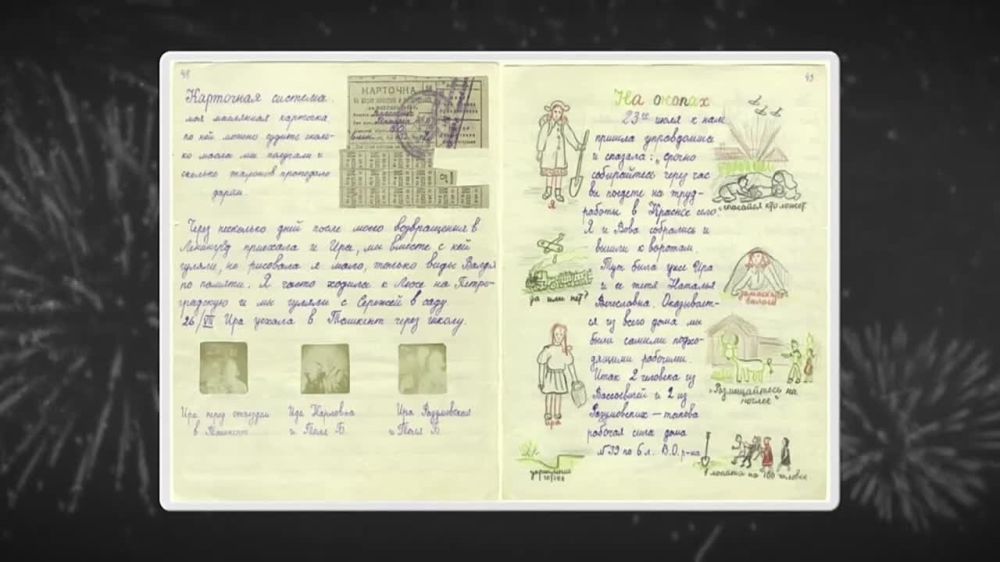 48
Карточная система.
моя масляная карточка
по ней можно судить сколь-
ко масла мы получали и
сколько талонов пропадало
даром.
КАРТОЧКА
Через несколько дней после моего возвращения в
Ленинград приехала и Ира, мы вместе с ней
гуляли, но рисовала я мало, только виды Валдая
по памяти. Я часто ходила к Люсе на Петро-
градскую и мы гуляли с Сережей в саду.
26/VII Ира уехала в Ташкент через школу.
Ира перед отъездом
в Ташкент
Ида Карловна
и Толя Б.
Ира Разумовская
и Толя Б.
49
На окопах
23го июля к нам
пришла управдомша
и сказала: „срочно
собирайтесь через час
вы поедете на труд-
работы в Красное село.
Я и Вова собрались и
вышли к воротам.
Тут была уже Ира
и ее тетя Наталья
Вячеславна. Оказывает-
ся из всего дома мы
были самыми подхо-
дящими рабочими.
Итак 2 человека из
и 2 из
Разумовских — такова
рабочая сила дома
№39 по 6 л. В.О. р-на
Я
да или нет?
Ира
„спасайся кто может
„Размещайтесь на
ночлег“
лопата на 100 человек